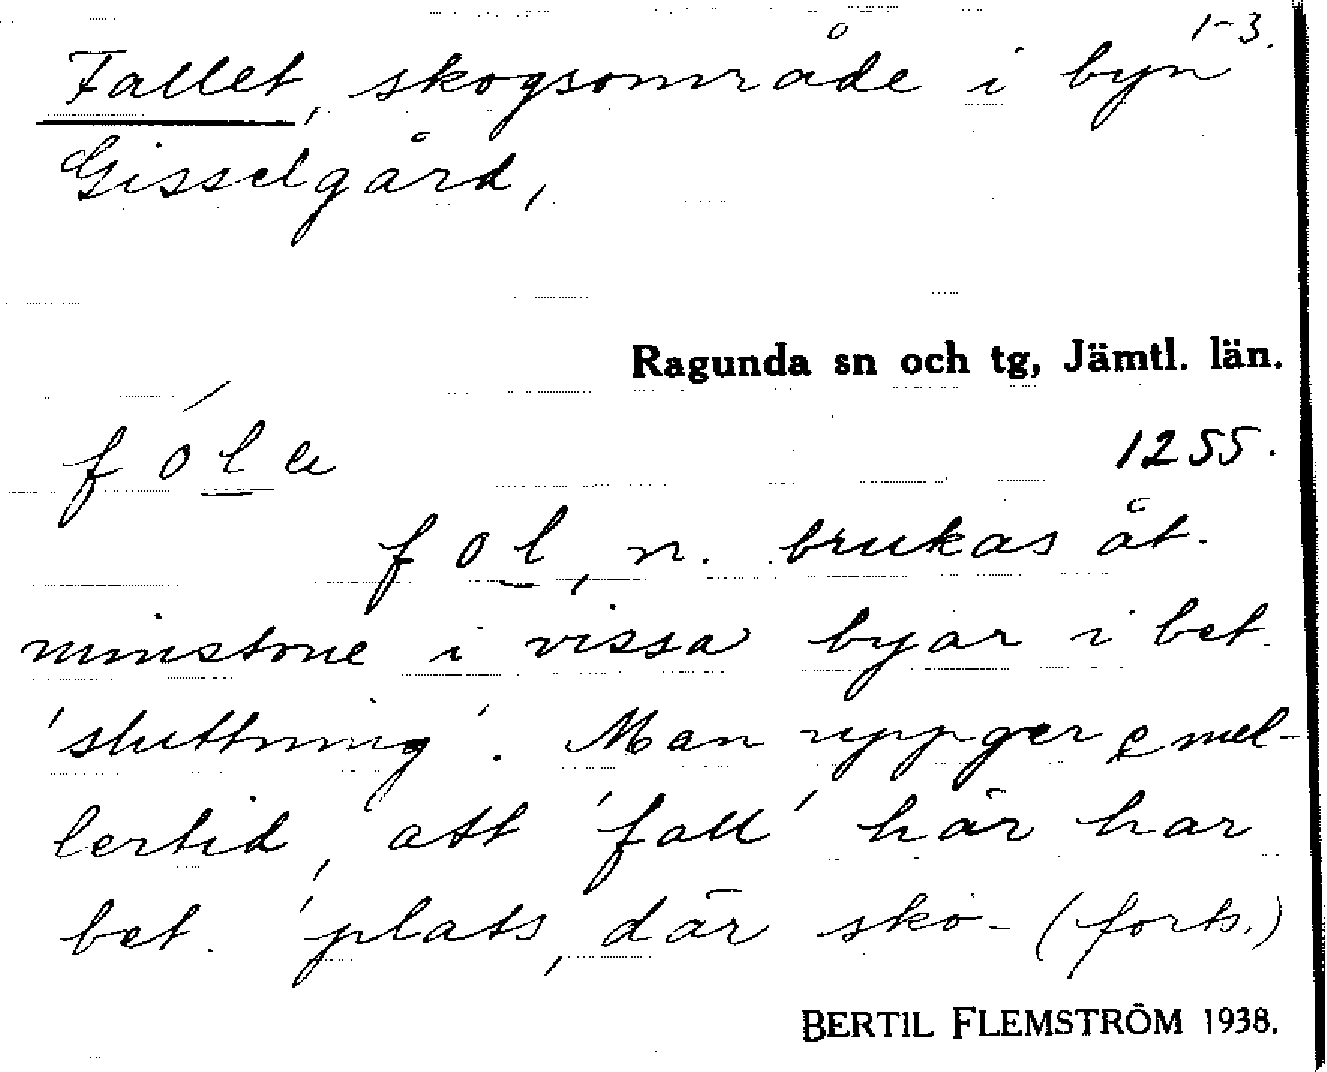 1-3.
Fallet, skogsområde i byn
Gisselgård,
Ragunda sn och tg, Jämtl. län.
fóla
1255.
fol, n. brukas åt-
minstone i vissa byar i bet.
'sluttning'. Man uppger emel-
lertid, att 'fall' här har
bet. 'plats, där sko- (forts.)
BERTIL FLEMSTRÖM 1938.